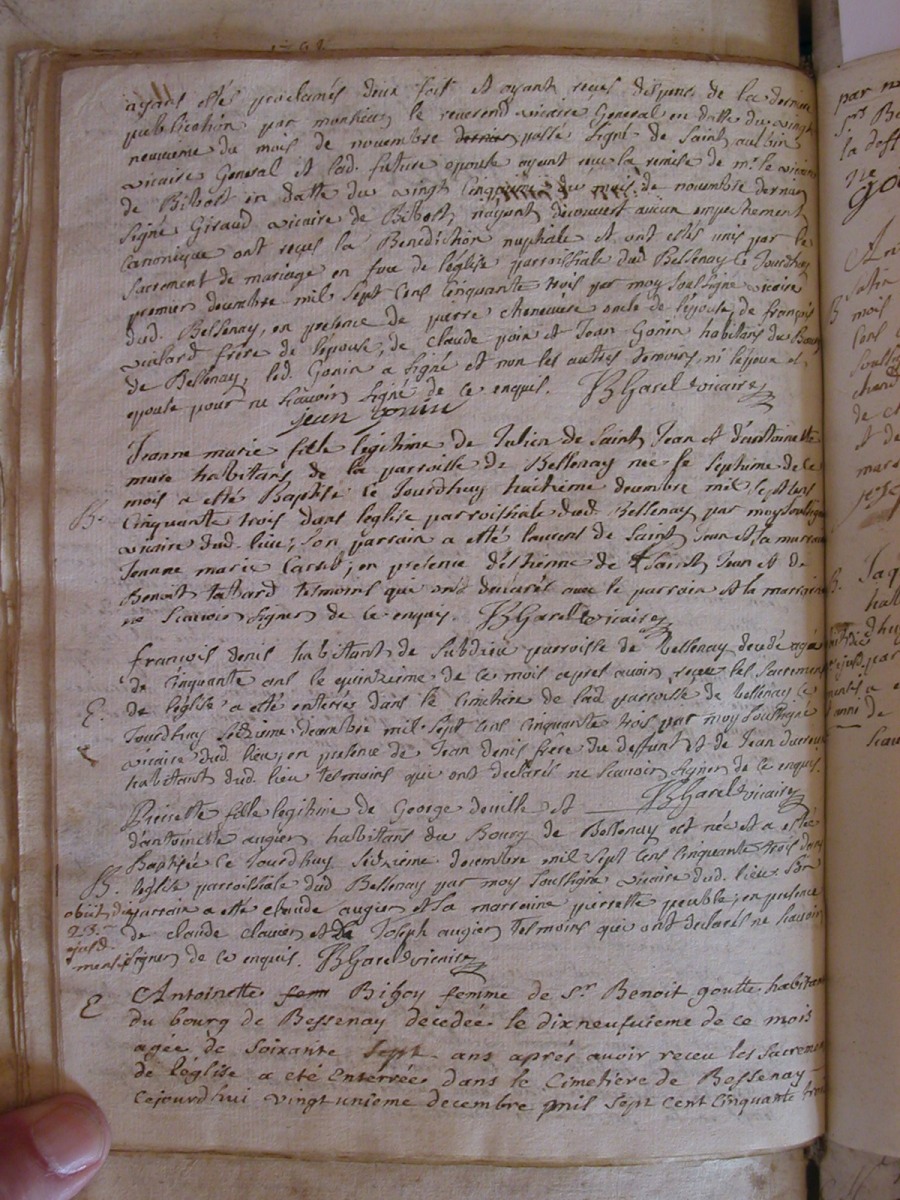 ayant esté proclamés deux fois et ayant receus dispense de la derniere
publication par monsieur le reverend vicaire General en datte du vingt
neuvieme du mois de novembre dernier passé signé de Saint aulbin
vicaire General et lad. future epouse ayant reçu la remise de mr. le vicaire
de Bibost en datte du vingt du mois de novembre dernier
signé Giraud vicaire de Bibost, nayant decouvert aucun empechement
Canonique ont reçus la Benediction nuptiale et ont estés unis par le
Sacrement de mariage en face de leglise parroissiale dud Bessenay ce Jourdhuy
premier decembre mil sept cens cinquante trois par moy soussigné vicaire
dud. Bessenay, en presence de pierre oncle de lépouse, de françois
frere de lépouse, de claude et Jean Gonin habitans du Bourg
de Bessenay, led. Gonin a signé et non les autres temoins, ni lépoux et
epouse pour ne sçavoir signé de ce enquis. Garel vicaire
jean gonin
Jeanne marie fille legitime de Julien de Saint Jean et d'antoinette
mure habitans de la parroisse de Bessenay née le septieme de ce
mois a esté Baptisé ce Jourdhuy huitieme decembre mil sept cens
B.
Cinquante trois dans leglise parroissiale dud. Bessenay par moy soussigné
vicaire dud. lieu; son parrain a esté laurent de Saint Jean et la marraine
Jeanne marie ; en présence d'estienne de Saint Jean et de
Benoit tesmoins qui ont declarés avec le parrain et la marraine
ne scavoir signer de ce enquis. Garel vicaire
françois denis habitant de parroisse de Bessenay decedé agé
de cinquante ans le quinzieme de ce mois apres avoir receu les sacremens
E.
de leglise a esté enterrés dans le cimetière de lad parroisse de bessenay ce
Jourdhuy seizieme decembre mil sept cens cinquante trois par moy soussigné
vicaire dud lieu, en presence de Jean denis frère du deffunt et de Jean
habitant dud. lieu tesmoins qui ont declarés ne scavoir signer de ce enquis.
Garel vicaire
Pierrette fille legitime de George deville et
d'antoinette augier habittans du Bourg de Bessenay est née et a esté
Baptisée ce Jourdhuy seizieme decembre mil sept cens cinquante trois dans
B.
leglise parroissiale dud Bessenay par moy soussigné vicaire dud. lieu. Son
obiit die
parrain a esté claude augier et la marraine pierrette ; en presence
23
de claude et de Joseph augier tesmoins qui ont declarés ne scavoir
ejusd.
mensis
signer de ce enquis. Garel vicaire
E
Antoinette fem femme de Sr. Benoit goutte habitant
du bourg de Bessenay decedée le dixneufuieme de ce mois
agée de soixante sept ans aprés avoir receu les sacremens
de léglise a eté Enterrée dans le Cimetiére de Bessenay
Cejourdhui vingtunieme decembre mil sept cent cinquante trois